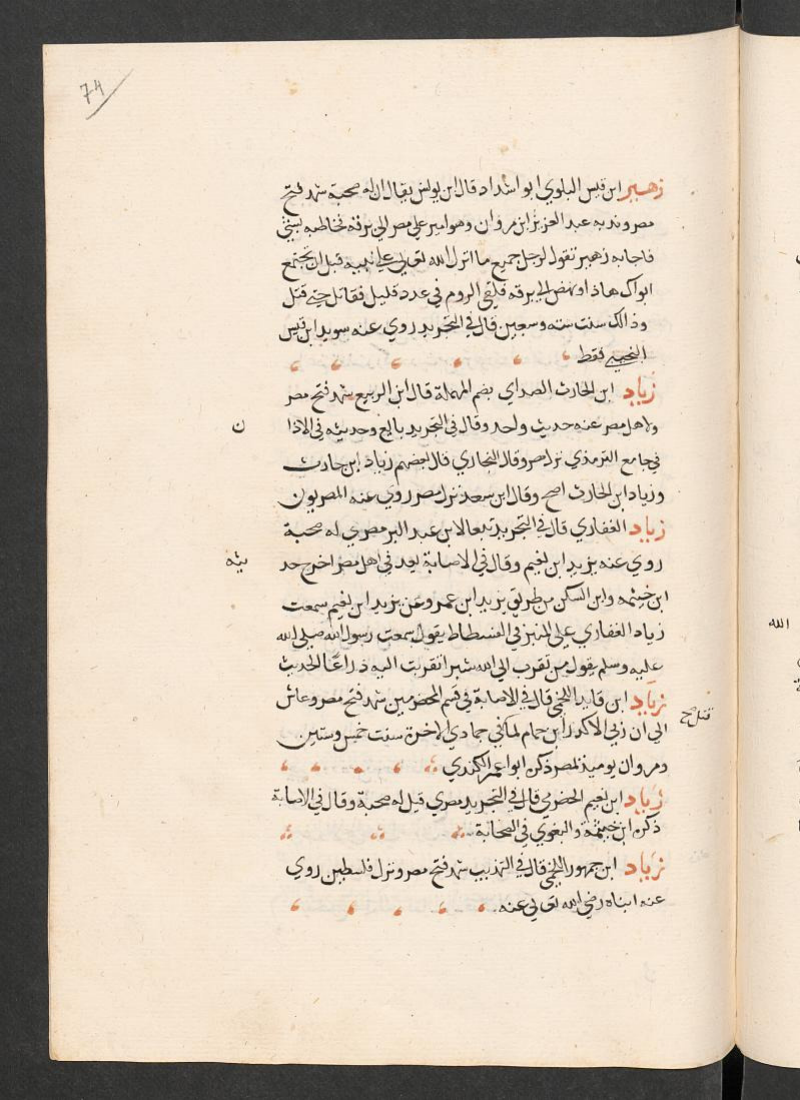 74
زهير ابن قيس البلوي ابو اشداد قال ابن يونس يقال ان له صحبة شهد فتح
مصر وندبه عبد العزيز ابن مروان وهو امير علي مصر الي برقه فخاطبه بشي
فاجابه زهير تقول لرجل جميع ما انزل الله تعالي علي نبيه قبل ان يجتمع
ابواك هاذا ونهض الي برقه فلقي الروم في عدد قليل فقاتل حتي قتل
وذالك سنت سته وسبعين قال في التجريد روي عنه سويد ابن قيس
التجيبي فقط
زياد ابن الحارث الصداي بضم المهملة قال ابن الربيع شهد فتح مصر
ولاهل مصر عنه حديث واحد وقال في التجريد بايع وحديثه في الاذا
ن
في جامع الترمذي نزل مصر وقال البخاري قال بعضهم زياد ابن حارث
وزياد ابن الحارث اصح وقال ابن سعد نزل مصر روي عنه المصريون
زياد الغفاري قال في التجريد تبعا لابن عبد البر مصري له صحبة
روي عنه يزيد ابن نعيم وقال في الاصابة يعد في اهل مصر اخرج حد
يثه
ابن خيثمه وابن السكن من طريق يزيد ابن عمرو عن يزيد ابن نعيم سمعت
زياد الغفاري علي المنبر في الفسطاط يقول سمعت رسول الله صلي الله
عليه وسلم يقول من تقرب الي الله شبرا تقربت اليه ذراعا الحديث
زياد ابن قايد اللخمي قال في الاصابة في قسم المخضرمين شهد فتح مصر وعاش
الي ان زني الاكدر ابن حمام لما في جمادي الاخرة سنت خمس وستين
قتل صح
ومروان يوميذ بمصر ذكره ابوا عمر الكندي
زياد ابن نعيم الحضرمي قال في التجريد مصري قيل له صحبة وقال في الاصابة
ذكره ابن خيثمة والبغوي في الصحابة
زياد ابن جمهور اللخمي قال في التهذيب شهد فتح مصر ونزل فلسطين روي
عنه ابناه رضي الله تعالي عنه
الله